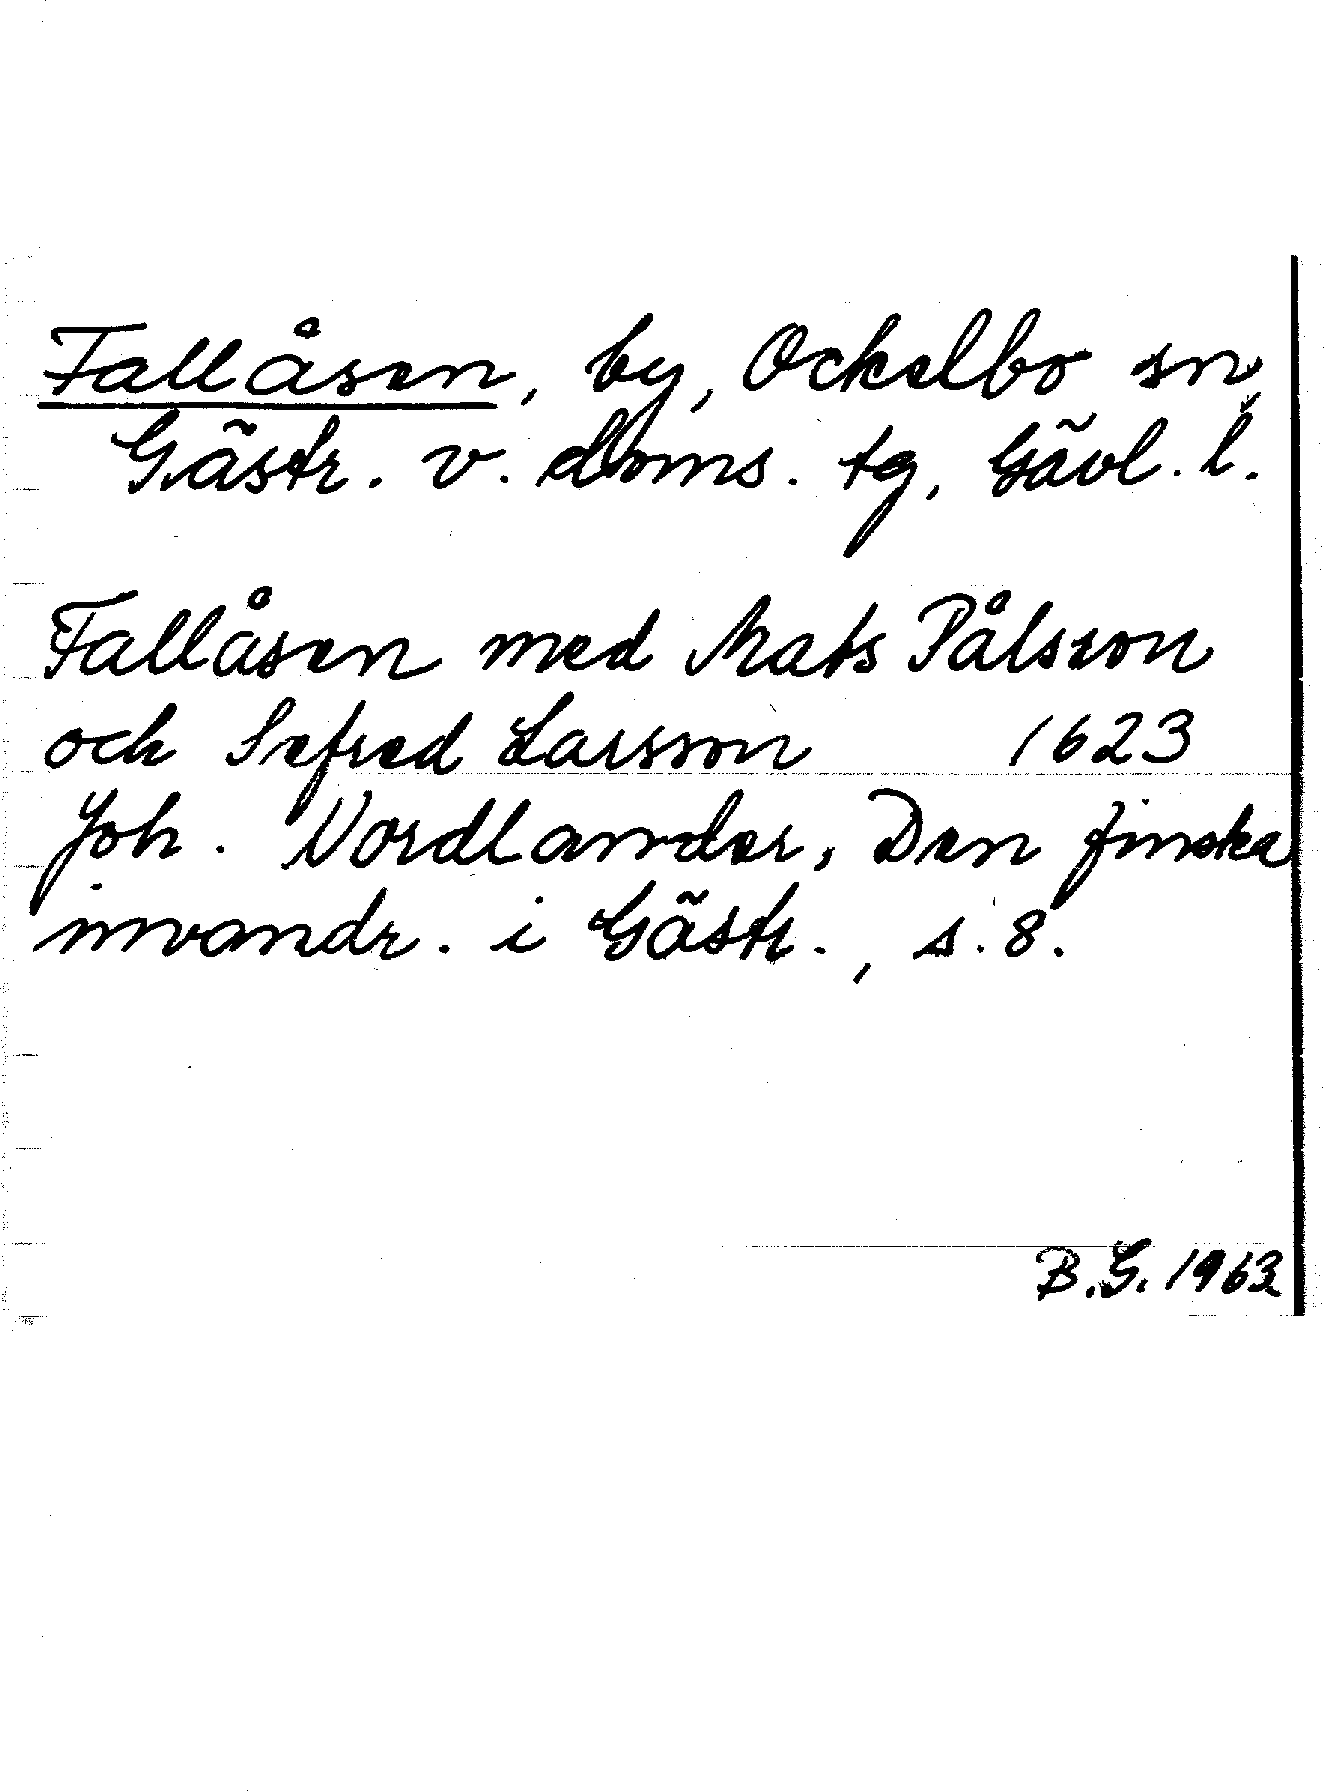 Fallåsen, by, Ockelbo sn,
Gästr. v. doms. tg, Gävl. l.
Fallåsen med Mats Pålsson
och Sefred Larsson 1623
Joh. Nordlander, Den finska
invandr. i Gästr., s. 8.
B.G. 1963